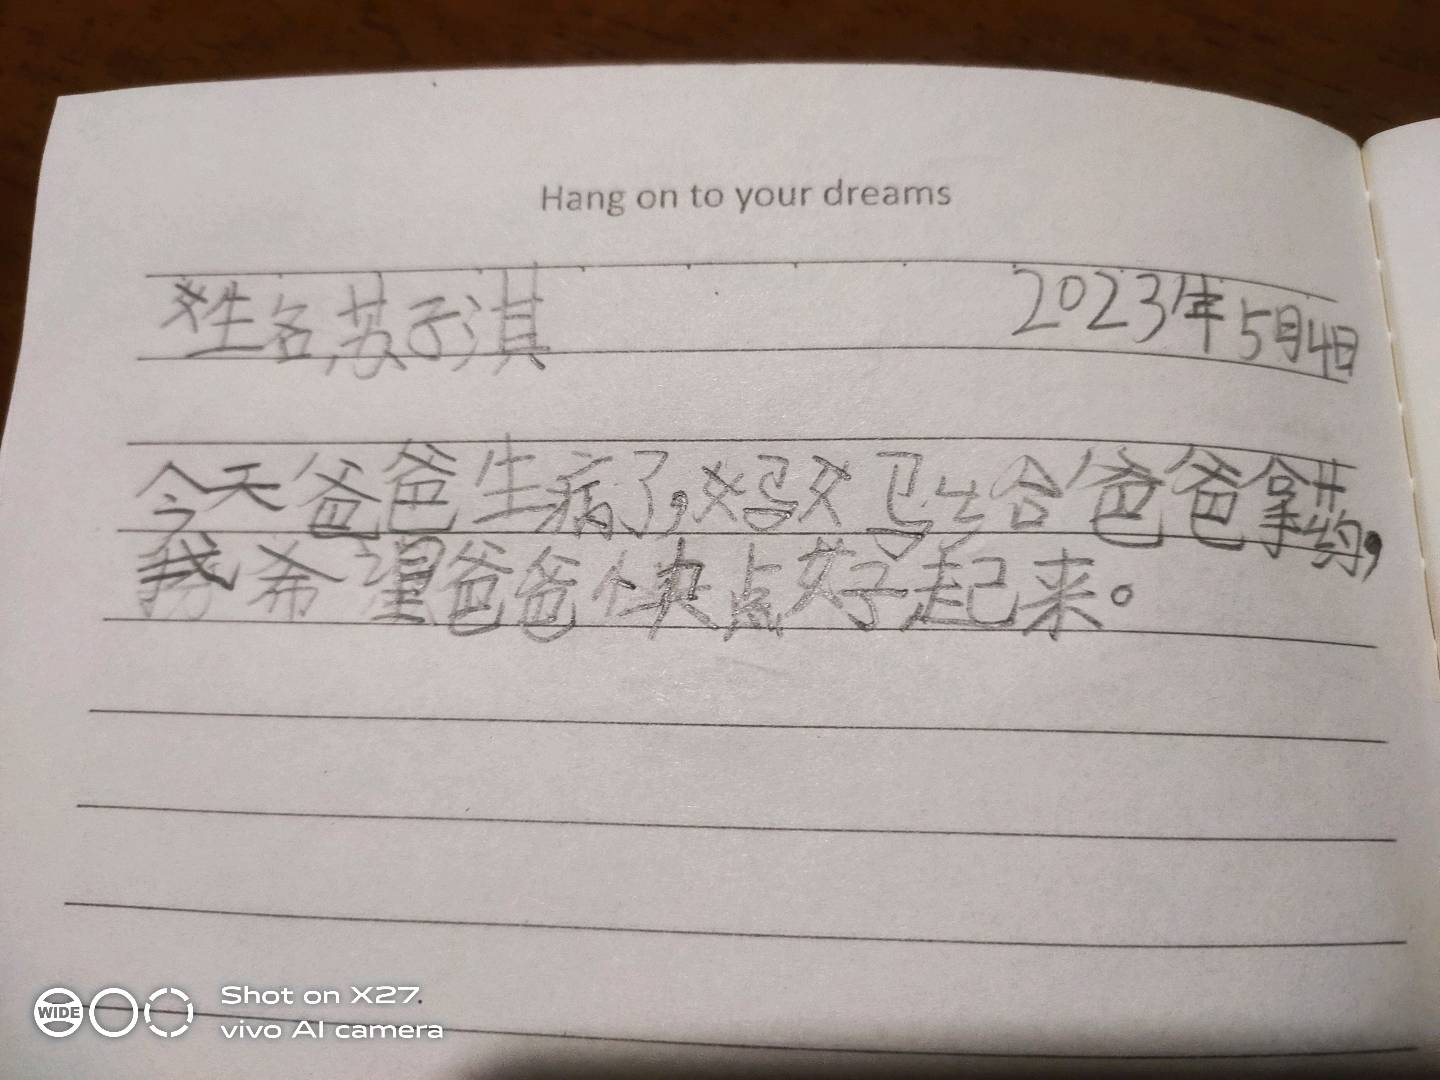 Hang on to your dreams
姓名,苏子淇 2023年5月4日
今天爸爸生病了,妈妈给爸爸拿药,
我希望爸爸快点好起来。
WIDE
Shot on X27.
vivo AI camera